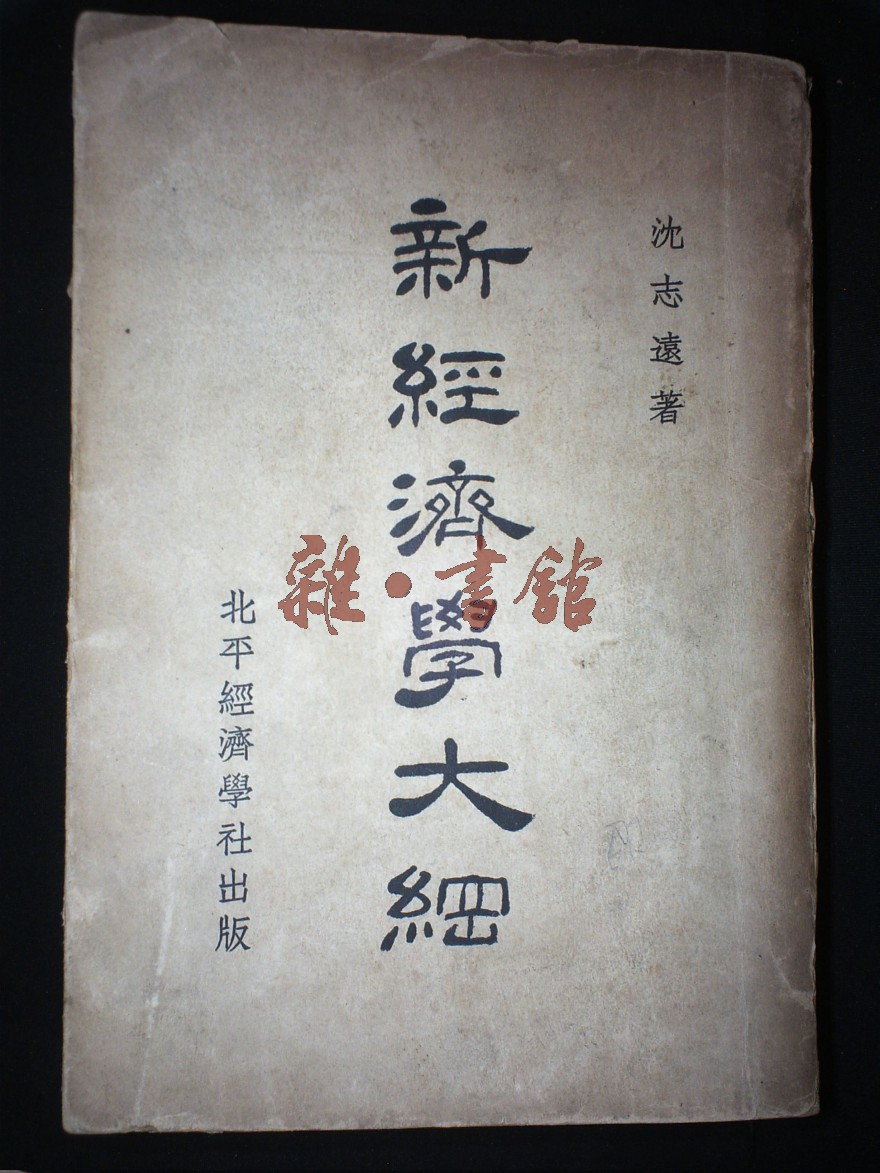 沈志遠著
新經濟學大綱
北平經濟學社出版
雜·書館